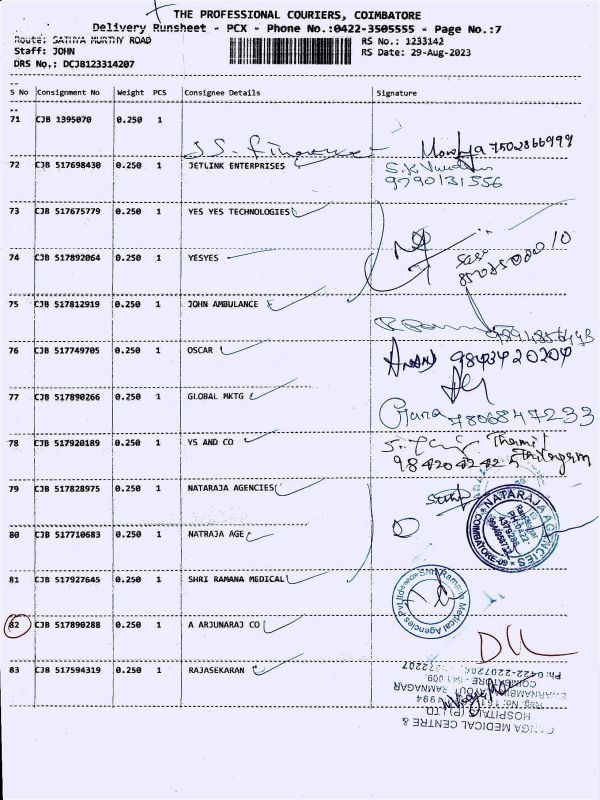 THE PROFESSIONAL COURIERS, COIMBATORE
Delivery Runsheet - PCX - Phone No.:0422-3505555 - Page No.:7
Route: SATHYA MURTHY ROAD
RS No.: 1233142
Staff: JOHN
RS Date: 29-Aug-2023
DRS No.: DCJB123314207
S No Consignment No Weight PCS Consignee Details Signature
71 CJB 1395070 0.250 1
7502866999
72 CJB 517698430 0.250 1 JETLINK ENTERPRISES
9790131556
73 CJB 517675779 0.250 1 YES YES TECHNOLOGIES
74 CJB 517892064 0.250 1 YESYES
75 CJB 517812919 0.250 1 JOHN AMBULANCE
76 CJB 517749705 0.250 1 OSCAR
ANAND 9843420204
77 CJB 517890266 0.250 1 GLOBAL MKTG
7806847233
78 CJB 517920189 0.250 1 YS AND CO
9842042425
79 CJB 517828975 0.250 1 NATARAJA AGENCIES
NATARAJA AGENCIES
COIMBATORE-09
80 CJB 517710683 0.250 1 NATRAJA AGE
81 CJB 517927645 0.250 1 SHRI RAMANA MEDICAL
Shri Ramana Medical Agencies Pvt Ltd
82 CJB 517890288 0.250 1 A ARJUNARAJ CO
83 CJB 517594319 0.250 1 RAJASEKARAN
GANGA MEDICAL CENTRE &
HOSPITALS (P) LTD